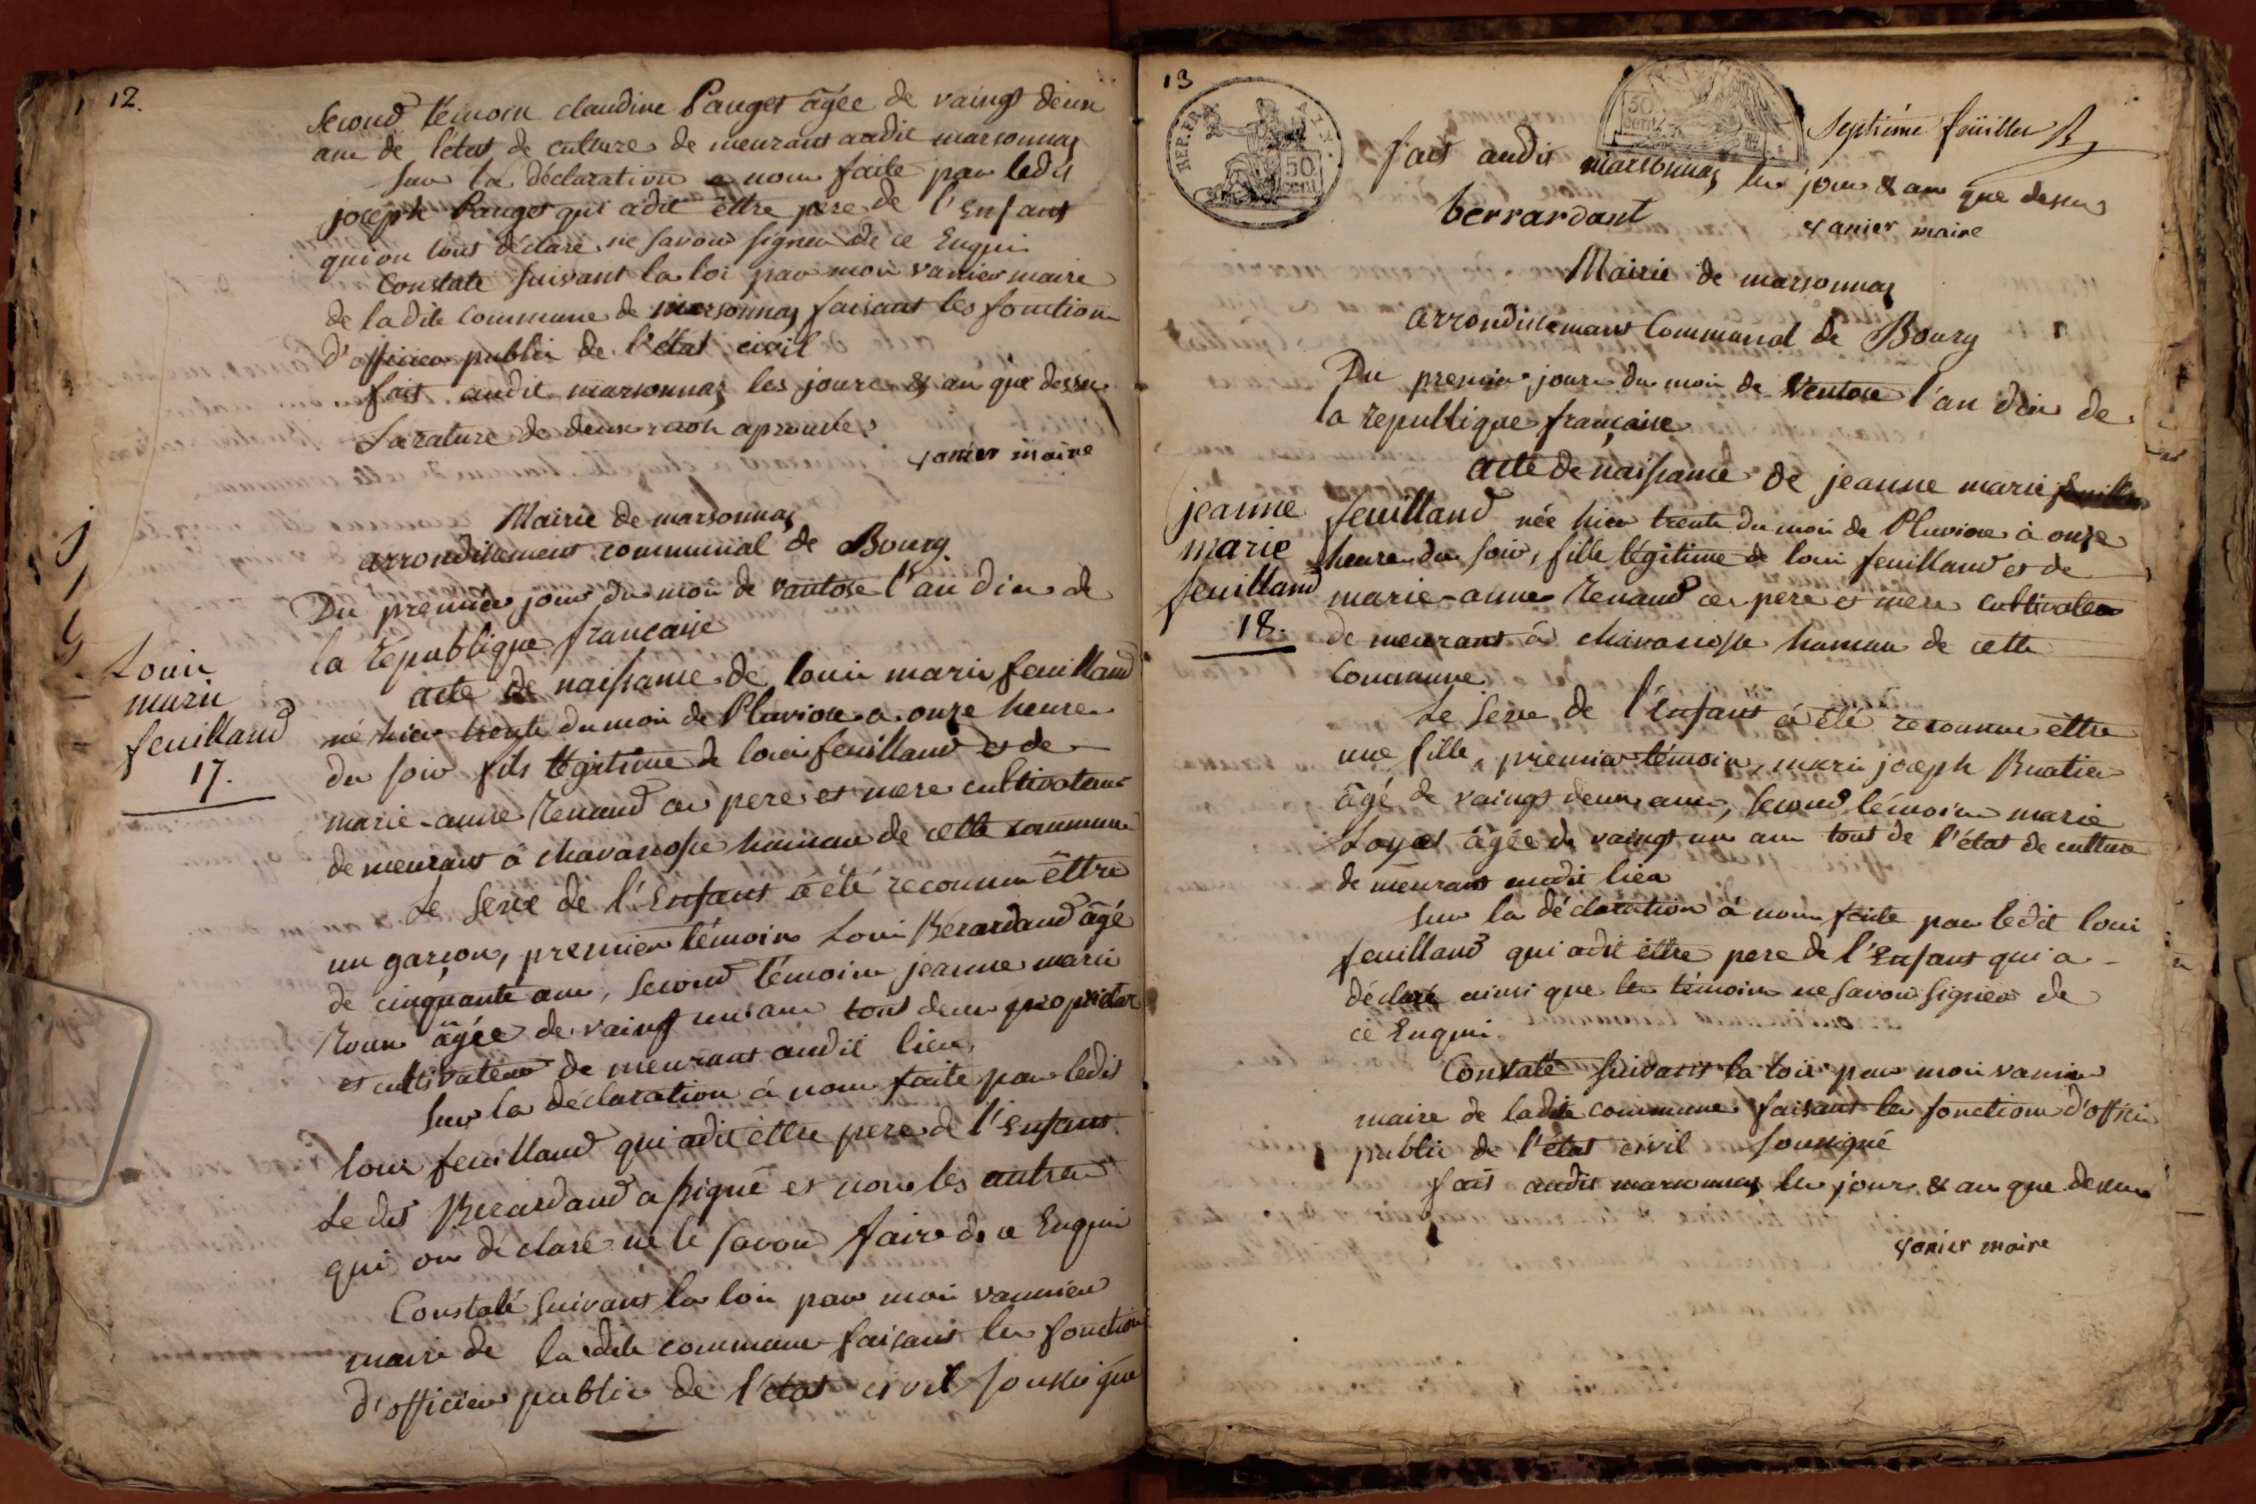 12.
second témoin claudine Panget âgée de vaingt deux
ans de l'etat de culture de meurant audit marsonnas
sur la déclaration a nous faite par ledit
joseph Panget qui a dit êttre pere de l'Enfant
qui on tous déclaré ne savoir signer de ce Enquis
Constaté suivant la loi par moi vanier maire
de la dite commune de marsonnas faisant les fonction
d'officier public de l'état civil
fait audit marsonnas les jours & an que dessus
La rature de deux mots aprouvée
vanier maire
Mairie de marsonnas
arrondissement communal de Bourg
Du premier jour du mois de vantose l'an dix de
la republique francaise
Louis
marie
feuilland
17.
acte de naissance de louis marie feuilland
né hier trente du mois de Pluviose a onze heures
du soir fils légitime de louis feuilland et de
marie-anne Renaud ces pere et mere cultivateurs
de meurant à chavanosse hameau de cette commune
Le sexe de l'Enfant a été reconnu êttre
un garçon, premier témoin Louis Berardand âgé
de cinquante ans, second témoin jeanne marie
âgée de vaingt un ans tous deux propriétaire
et cultivateur de meurant audit lieu
sur la déclaration à nous faite par ledit
louis feuilland qui a dit êttre pere de l'Enfant
Le dit Berardand a signé et non les autres
qui on déclaré ne le savoir faire de ce Enquis
Constaté suivant la loi par moi vannier
maire de la dite commune faisant les fonction
d'officier public de l'état civil soussigné
13
REP. FRA.
50 cent
50 cent
septiéme feuillet
fait audit marsonnas les jour & an que dessus
berrardant
vanier maire
Mairie de marsonnas
arrondissemant Communal de Bourg
Du premier jour du mois de Ventose l'an dix de
la republique française
jeanne
marie
feuilland
18.
acte de naissance de jeanne marie
feuilland née hier trente du mois de Pluviose à onze
heures du soir, fille légitime de louis feuilland et de
marie-anne Renaud ces pere et mere cultivateur
de meurant à chavanosse hameau de cette
Commune
Le sexe de l'Enfant à été reconnu êttre
une fille, premier témoin, marie joseph Buatier
âgé de vaingt deux ans, second témoin marie
Loyet âgée de vaingt un ans tout de l'état de culture
de meurant audit lieu
sur la déclaration à nous faite par ledit louis
feuilland qui a dit êttre pere de l'Enfant qui a
déclaré ainsi que les témoins ne savoir signer de
ce Enquis
Constaté suivant la loi par moi vanier
maire de ladite commune faisant les fonction d'offici
public de l'état civil soussigné
fait audit marsonnas les jour & an que dessus
vanier maire